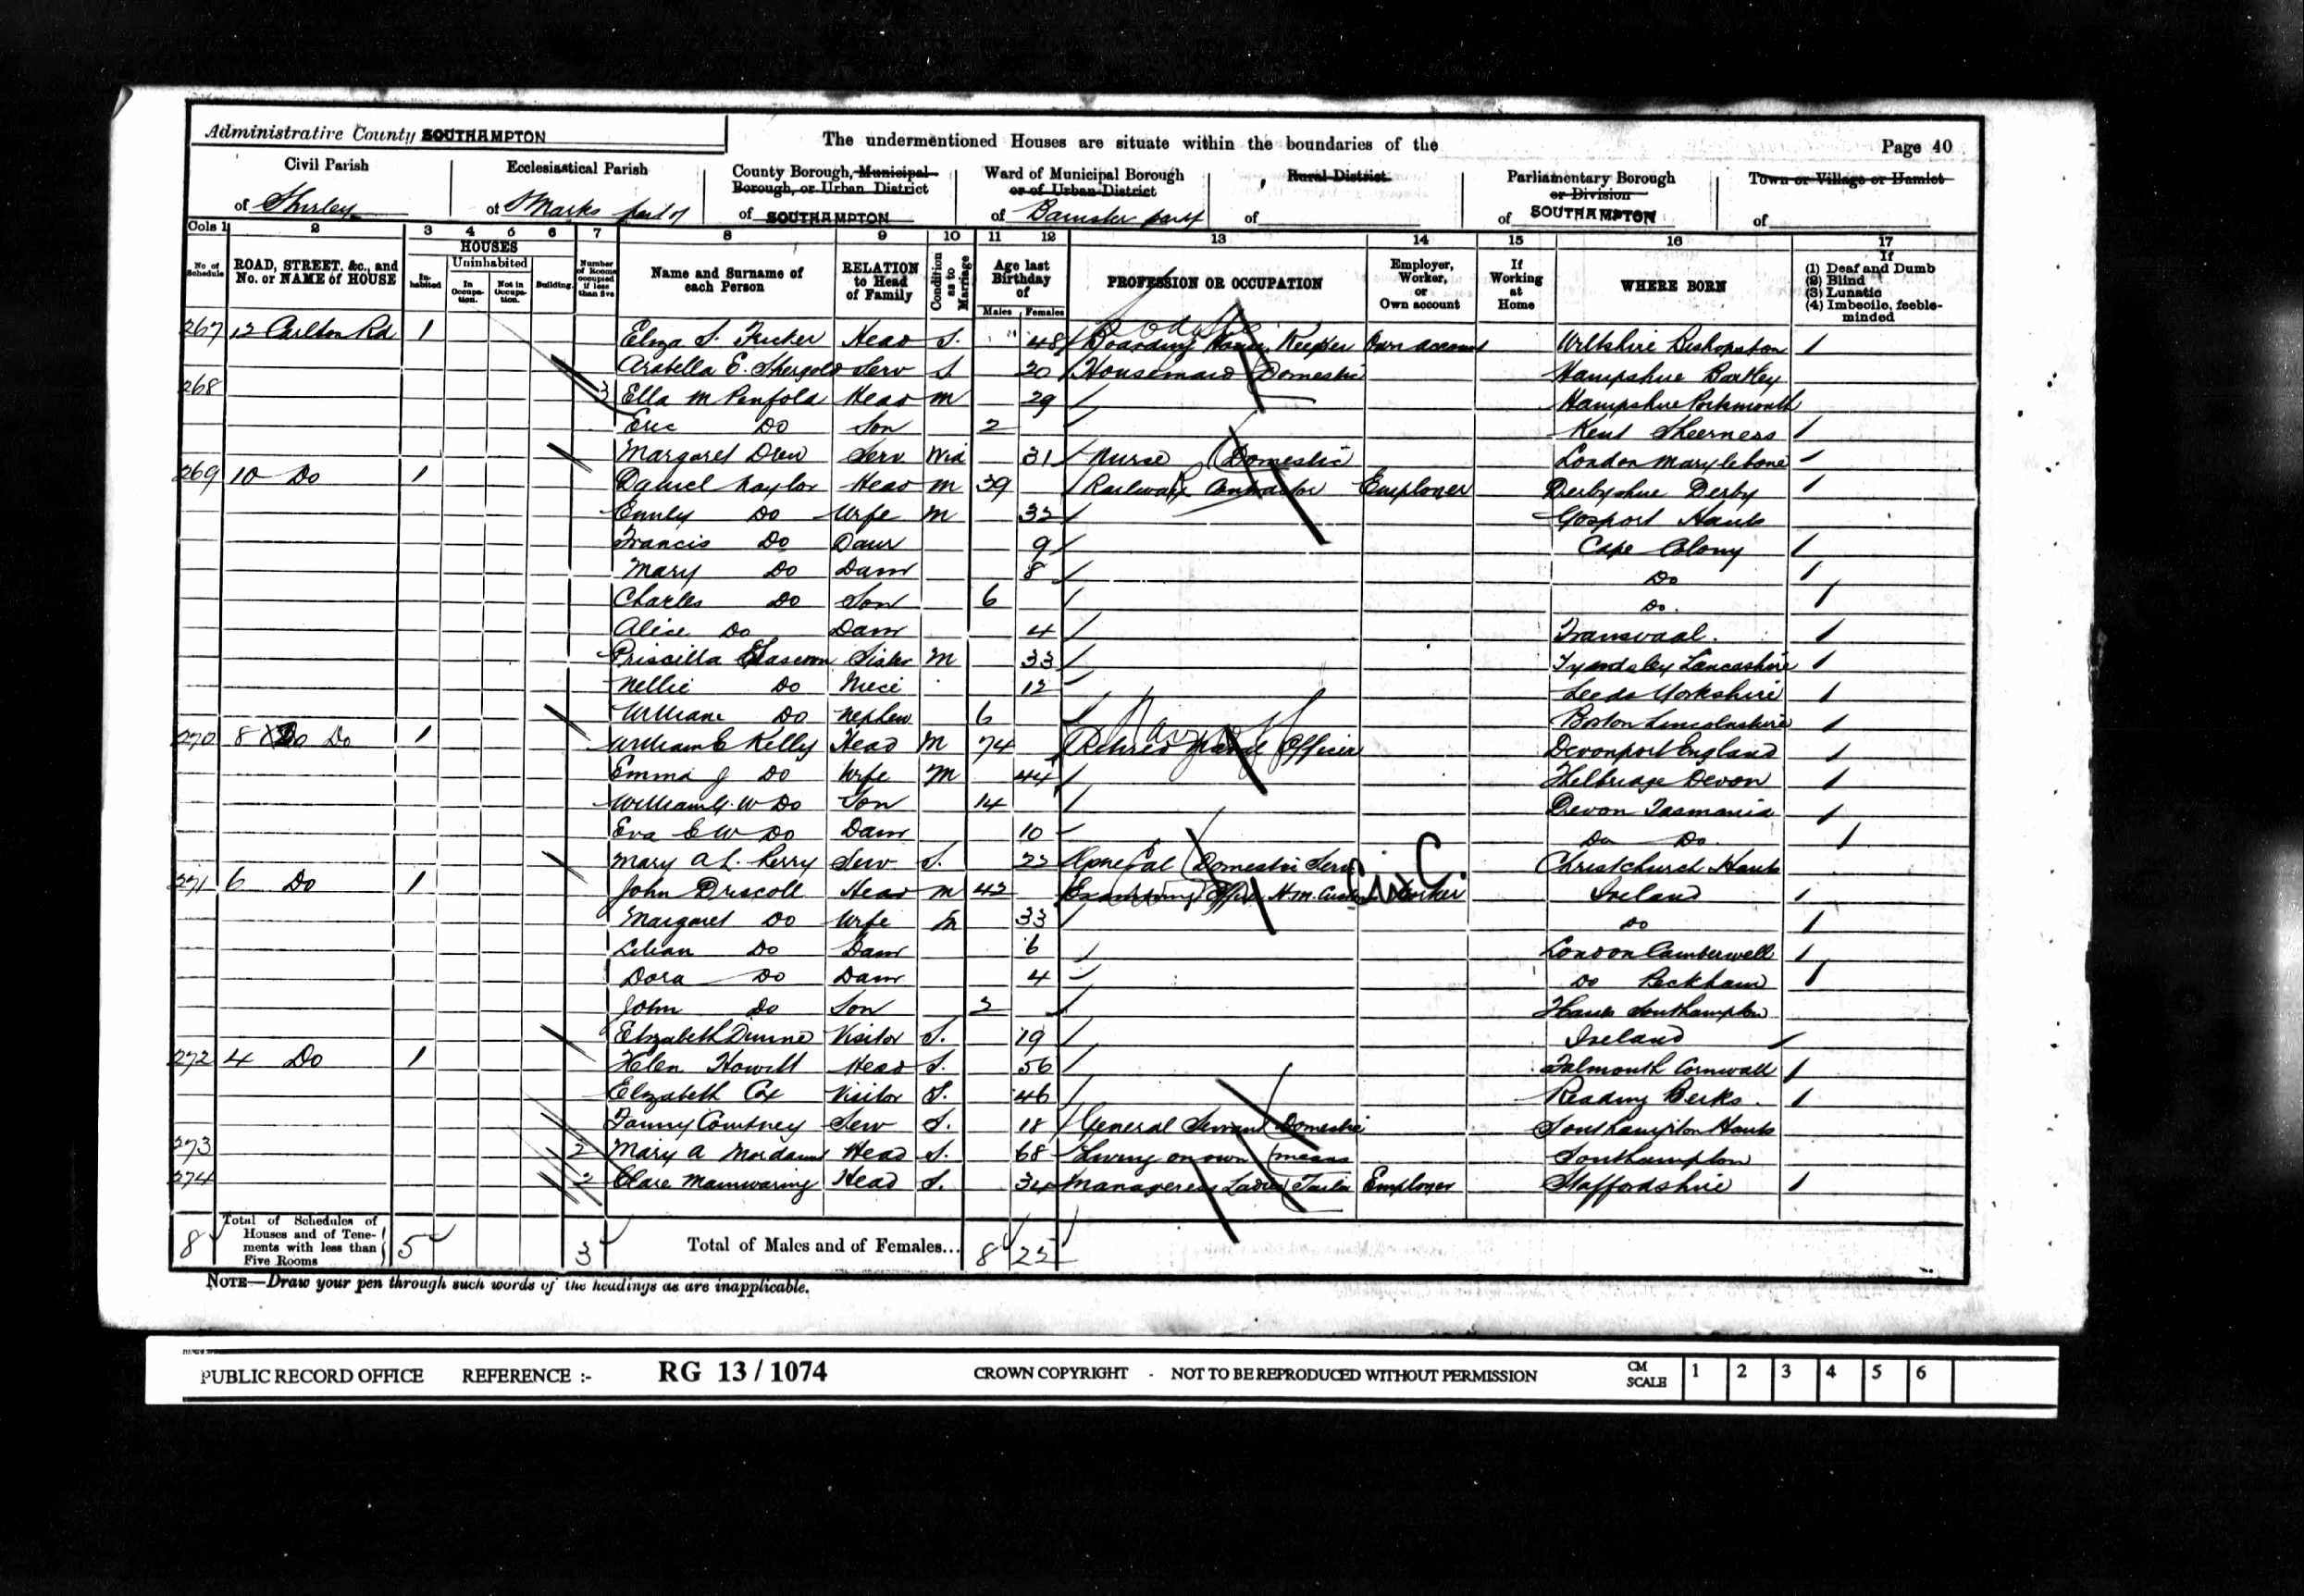 Administrative County SOUTHAMPTON
The undermentioned Houses are situate within the boundaries of the
Page 40
Civil Parish
of Shirley
Ecclesiastical Parish
of St Marks part of
County Borough, Municipal
Borough, or Urban District
of SOUTHAMPTON
Ward of Municipal Borough
or of Urban District
of Banister part
Rural District
of
Parliamentary Borough
or Division
of SOUTHAMPTON
Town or Village or Hamlet
of
Cols 1 2 3 4 5 6 7 8 9 10 11 12 13 14 15 16 17
No of Schedule
ROAD, STREET, &c., and No. or NAME of HOUSE
HOUSES
In-habited
Uninhabited
In Occupa-tion.
Not in Occupa-tion.
Building.
Number of Rooms occupied if less than five
Name and Surname of each Person
RELATION to Head of Family
Condition as to Marriage
Age last Birthday of
Males Females
PROFESSION OR OCCUPATION
Employer, Worker, or Own account
If Working at Home
WHERE BORN
If
(1) Deaf and Dumb
(2) Blind
(3) Lunatic
(4) Imbecile, feeble-minded
267 12 Carlton Rd 1 Eliza S. Tucker Head S. 48 Boarding House Keeper Own account Wiltshire Bishopston
Arabella E. Shergold Serv S 20 Housemaid Domestic Hampshire Bartley
268 3 Ella M Penfold Head M 29 Hampshire Portsmouth
Eric Do Son 2 Kent Sheerness
Margaret Drew Serv Wid 31 Nurse (Domestic) London Marylebone
269 10 Do 1 Daniel Naylor Head M 39 Railway Contractor Employer Derbyshire Derby
Emily Do Wife M 32 Gosport Hants
Francis Do Daur 9 Cape Colony
Mary Do Daur 8 Do
Charles Do Son 6 Do.
Alice Do Daur 4 Transvaal.
Priscilla Sister M 33 Tyldsley Lancashire
Nellie Do Niece 12 Leeds Yorkshire
William Do Nephew 6 Boston Lincolnshire
270 8 Do 1 William E Kelly Head M 74 Retired Naval Officer Devonport England
Emma J Do Wife M 44 Thelbridge Devon
William G. W Do Son 14 Devon Tasmania
Eva E W Do Daur 10 Do Do.
Mary A L. Perry Serv S. 22 General (Domestic Serv Christchurch Hants
271 6 Do 1 John Driscoll Head M 42 Examining Officer H.M. Customs Worker Ireland
Margaret Do Wife M 33 Do
Lilian Do Daur 6 London Camberwell
Dora Do Daur 4 Do Peckham
John Do Son 2 Hants Southampton
Elizabeth Dunne Visitor S. 19 Ireland
272 4 Do 1 Helen Howell Head S. 56 Falmouth Cornwall
Elizabeth Cox Visitor S. 46 Reading Berks.
Fanny Courtney Serv S. 18 General Servant Domestic Southampton Hants
273 2 Mary A Mordaunt Head S. 68 Living on own means Southampton
274 2 Clare Mainwaring Head S. 34 Manageress Ladies Tailor Employer Staffordshire
8 Total of Schedules of Houses and of Tene-ments with less than Five Rooms 5 3 Total of Males and of Females... 8 22
NOTE—Draw your pen through such words of the headings as are inapplicable.
PUBLIC RECORD OFFICE REFERENCE :- RG 13 / 1074 CROWN COPYRIGHT - NOT TO BE REPRODUCED WITHOUT PERMISSION CM SCALE 1 2 3 4 5 6